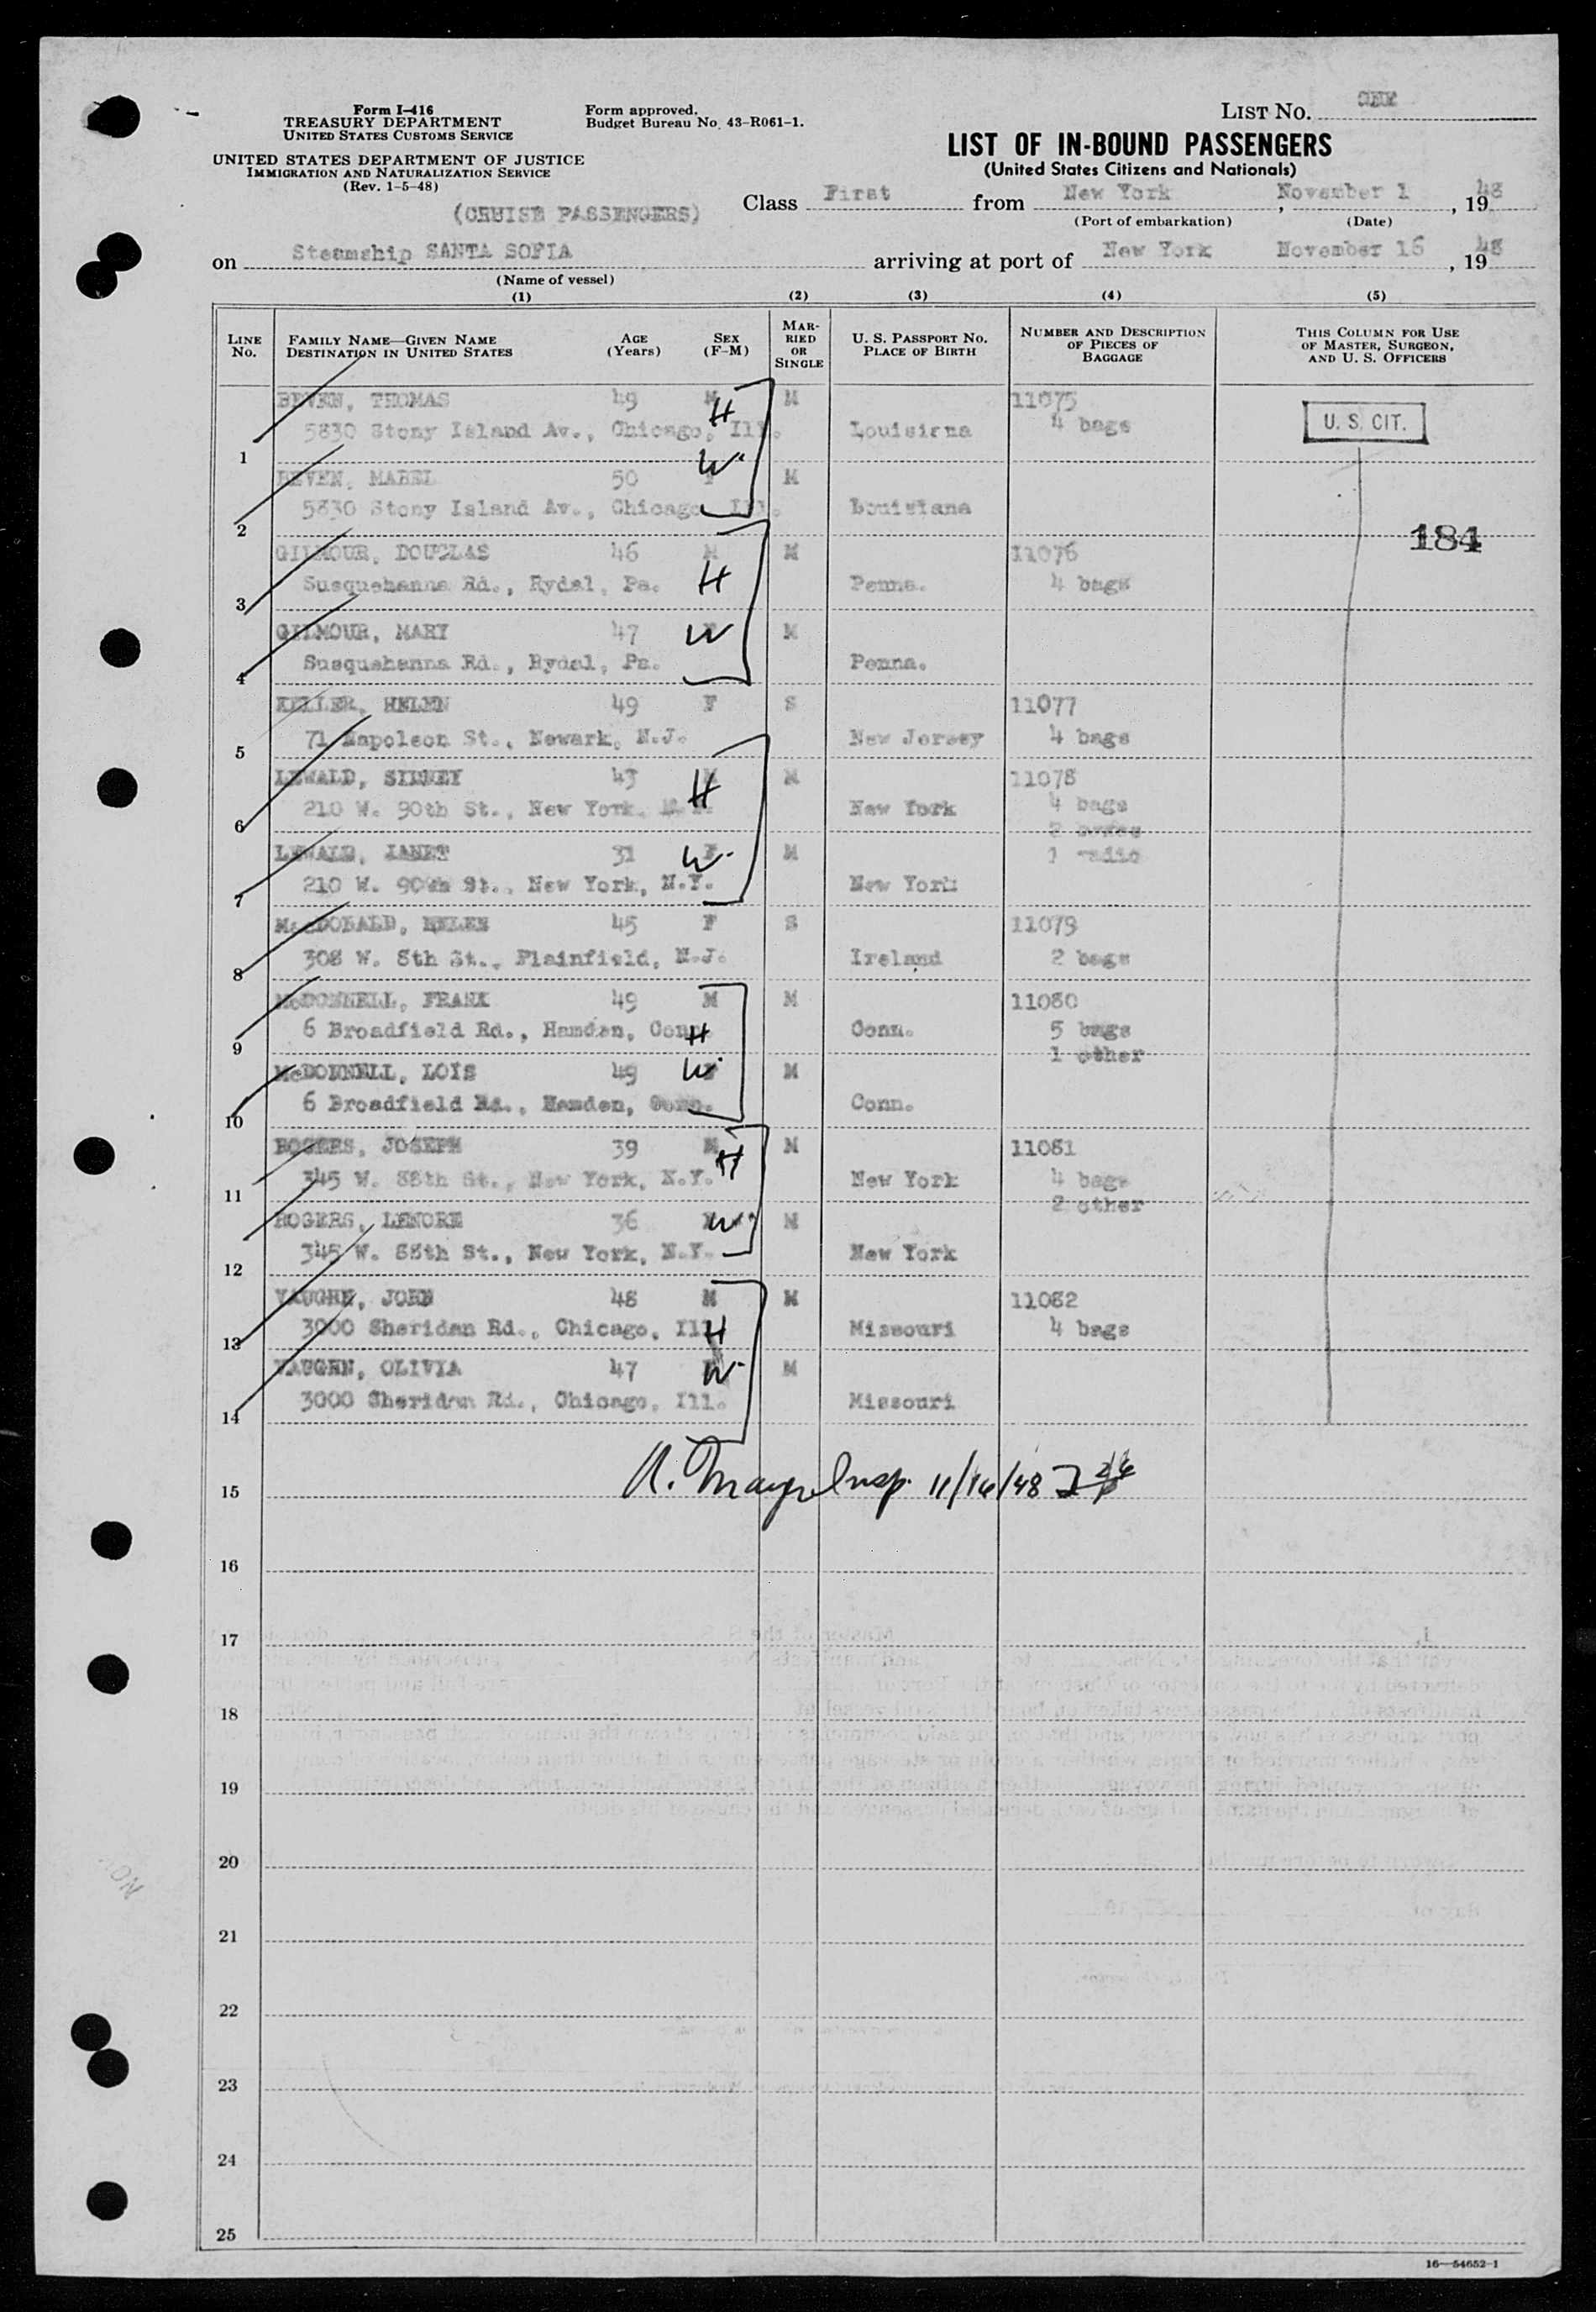 Form I-416
TREASURY DEPARTMENT
UNITED STATES CUSTOMS SERVICE
UNITED STATES DEPARTMENT OF JUSTICE
IMMIGRATION AND NATURALIZATION SERVICE
(Rev. 1-5-48)
Form approved.
Budget Bureau No. 43-R061-1.
LIST NO. ONE
LIST OF IN-BOUND PASSENGERS
(United States Citizens and Nationals)
(CRUISE PASSENGERS)
Class First from New York, November 1, 1948
(Port of embarkation) (Date)
on Steamship SANTA SOFIA arriving at port of New York November 16, 1948
(Name of vessel)
(1) (2) (3) (4) (5)
LINE NO.
FAMILY NAME—GIVEN NAME
DESTINATION IN UNITED STATES
AGE (Years)
SEX (F-M)
MARRIED OR SINGLE
U. S. PASSPORT NO.
PLACE OF BIRTH
NUMBER AND DESCRIPTION OF PIECES OF BAGGAGE
THIS COLUMN FOR USE OF MASTER, SURGEON, AND U. S. OFFICERS
BEVEN, THOMAS 49 M H M 11075
1 5830 Stony Island Av., Chicago, Ill. Louisiana 4 bags U. S. CIT.
BEVEN, MABEL 50 F W M
2 5830 Stony Island Av., Chicago, Ill. Louisiana
184
GILMOUR, DOUGLAS 46 M M 11076
3 Susquehanna Rd., Rydal, Pa. H Penna. 4 bags
GILMOUR, MARY 47 W M
4 Susquehanna Rd., Rydal, Pa. Penna.
KELLER, HELEN 49 F S 11077
5 71 Napoleon St., Newark, N.J. New Jersey 4 bags
LEWALD, SIDNEY 43 M H M 11078
6 210 W. 90th St., New York, N.Y. New York 4 bags
2
LEWALD, JANET 31 F W M 1 radio
7 210 W. 90th St., New York, N.Y. New York
MacDONALD, HELEN 45 F S 11079
8 308 W. 8th St., Plainfield, N.J. Ireland 2 bags
McDONNELL, FRANK 49 M M 11080
9 6 Broadfield Rd., Hamden, Conn. H Conn. 5 bags
1 other
McDONNELL, LOIS 49 W M
10 6 Broadfield Rd., Hamden, Conn. Conn.
ROGERS, JOSEPH 39 M H M 11081
11 345 W. 88th St., New York, N.Y. New York 4 bags
2 other
ROGERS, LENORE 36 W M
12 345 W. 88th St., New York, N.Y. New York
VAUGHN, JOHN 48 M M 11082
13 3000 Sheridan Rd., Chicago, Ill. H Missouri 4 bags
VAUGHN, OLIVIA 47 W M
14 3000 Sheridan Rd., Chicago, Ill. Missouri
15 Insp. 11/16/48
16
17
18
19
20
21
22
23
24
25
16—54652-1